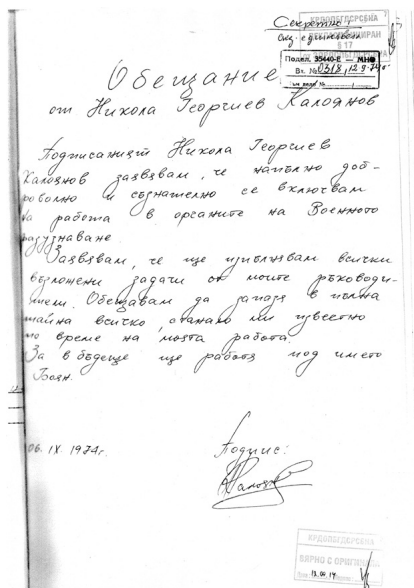 Секретно!
КРДОПБГДСРСБНА
ДЕКЛАСИФИЦИРАН
§ 17
Подел. 35440-Е — МНО
Обещание
от Никола Георгиев Калоянов
Подписаният Никола Георгиев
Калоянов заявявам, че напълно доб-
роволно и съзнателно се включвам
на работа в органите на Военното
разузнаване.
Заявявам, че ще изпълнявам всички
възложени задачи от моите ръководи-
тели. Обещавам да запазя в пълна
тайна всичко, станало ми известно
по време на моята работа.
За в бъдеще ще работя под името
Боян.
06. IX. 1974г.
Подпис:
КРДОПБГДСРСБНА
ВЯРНО С ОРИГИНАЛА